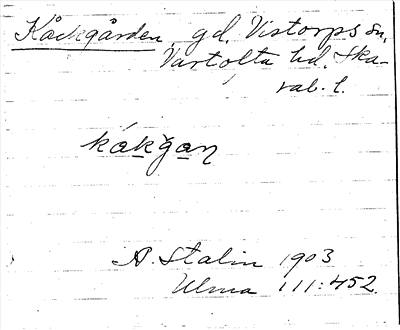 Kåckgården, gd, Vistorps sn,
Vartofta hd. Ska-
rab. l.
kákgan
A. Stalin 1903
Ulma 111:452.